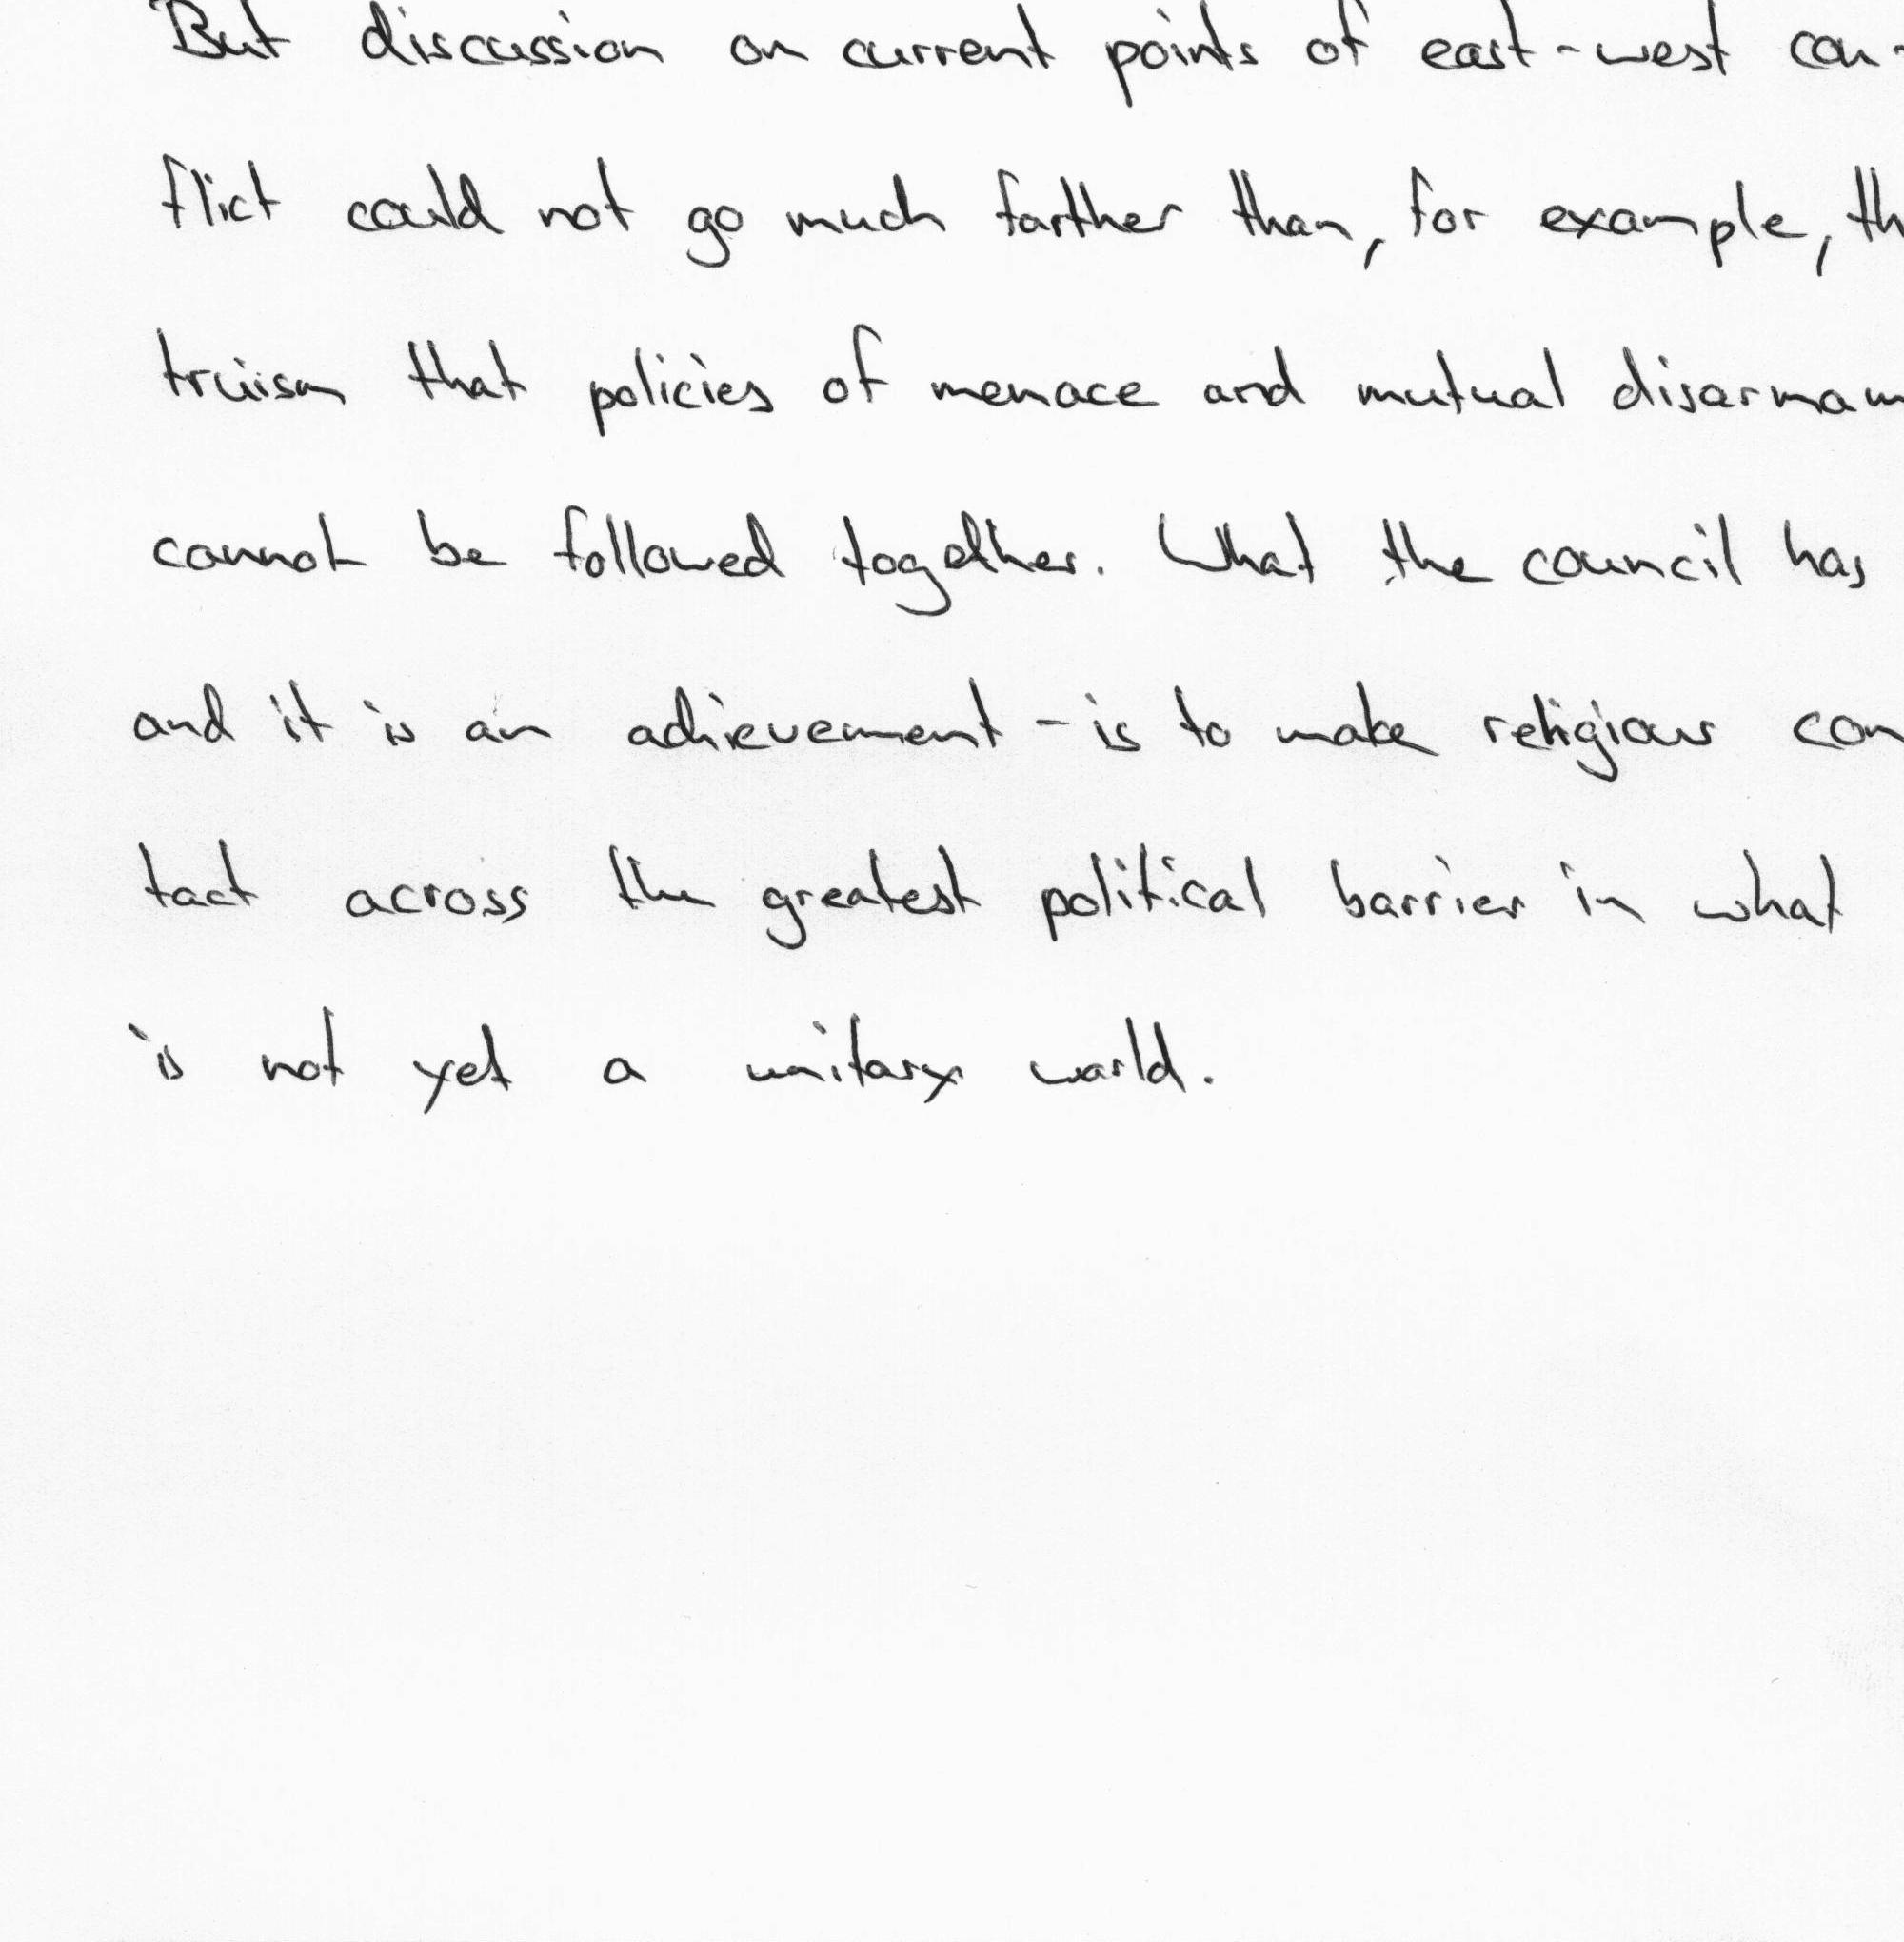 But discussion on current points of east-west con-
flict could not go much farther than, for example, th
truism that policies of menace and mutual disarmam
cannot be followed together. What the council has
and it is an achievement - is to make religious con
tact across the greatest political barrier in what
is not yet a unitary world.